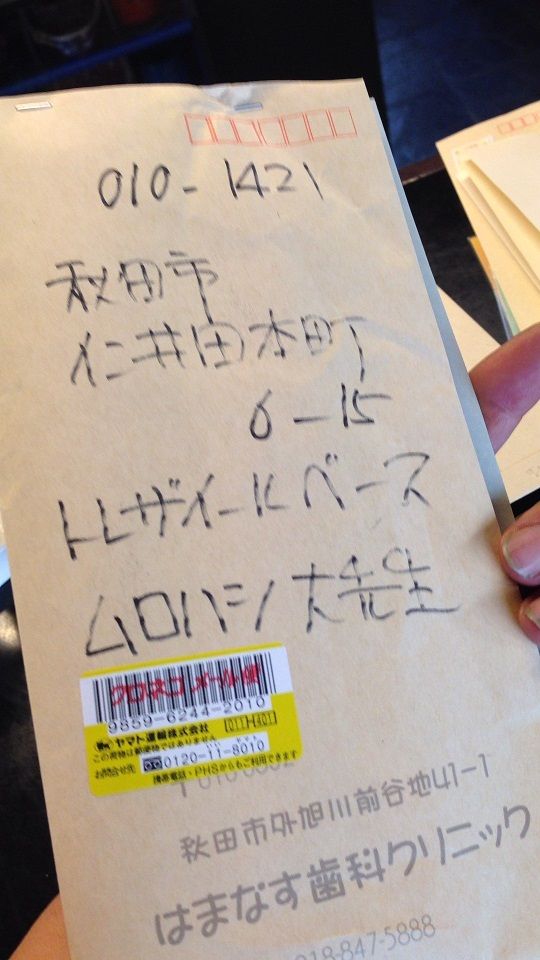 010-1421
秋田市
仁井田本町
6-15
トレザイールベース
ムロハシ大先生
クロネコメール便
9859-6244-2010
ヤマト運輸株式会社
この荷物は郵便物ではありません
お問合せ先 0120-11-8010
携帯電話・PHSからもご利用できます
秋田市外旭川前谷地41-1
はまなす歯科クリニック
018-847-5888